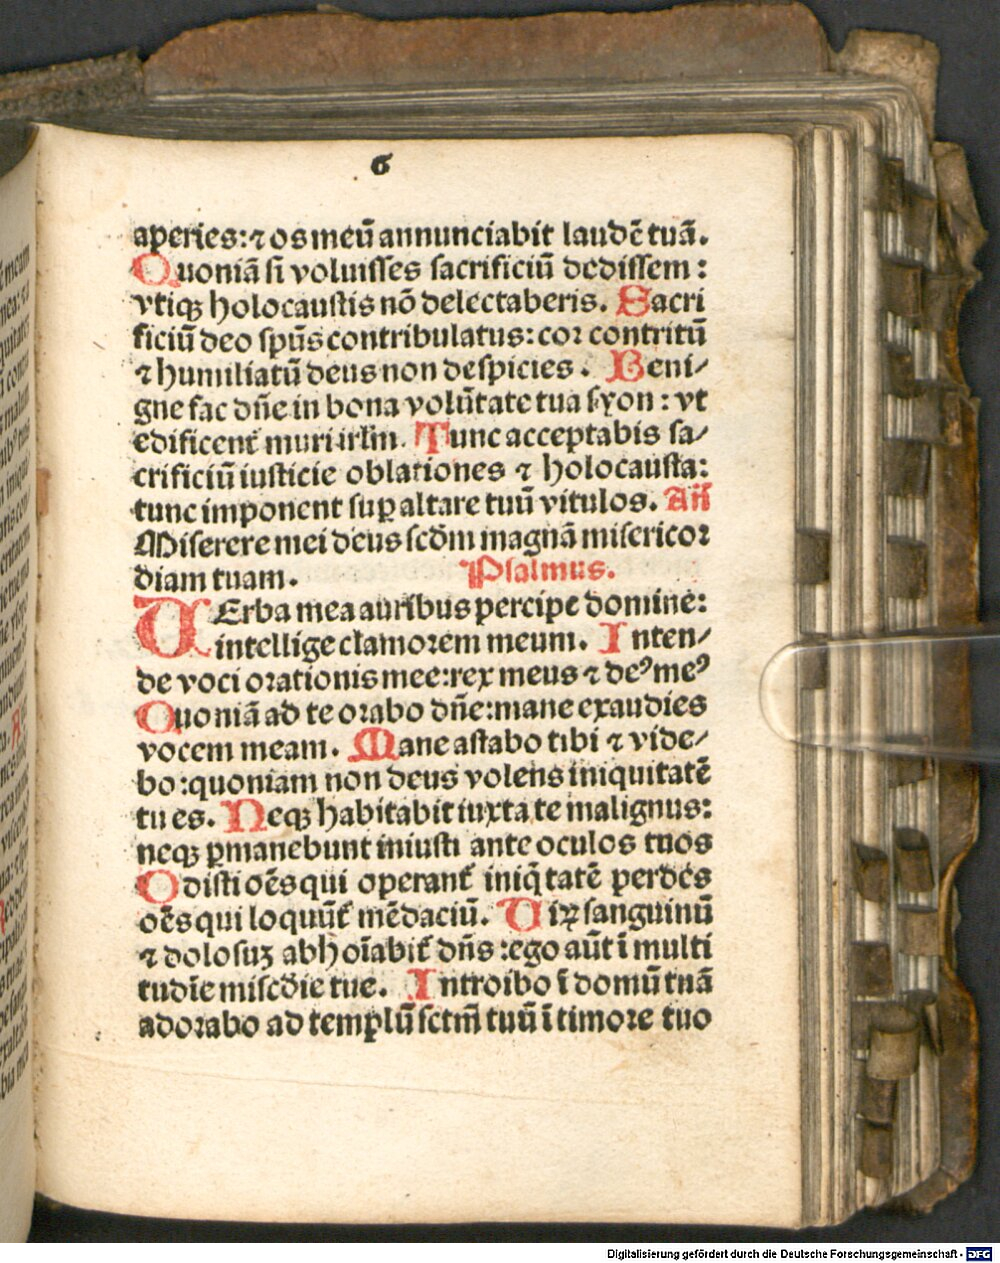 6
aperies:⁊ os meū annunciabit laudē tuā.
Quoniā si voluisses sacrificiū dedissem:
vtiqꝫ holocaustis nō delectaberis. Sacri
ficiū deo spūs contribulatus: cor contritū
⁊ humiliatū deus non despicies. Beni/
gne fac dñe in bona volūtate tua syon: vt
edificent᷑ muri irlm̄. Tunc acceptabis sa/
crificiū iusticie oblationes ⁊ holocausta:
tunc imponent suꝑ altare tuū vitulos. Añ
Miserere mei deus scd̄m magnā misericor
diam tuam. Psalmus.
VErba mea auribus percipe domine:
intellige clamorem meum. Inten/
de voci orationis mee: rex meus ⁊ deꝰ meꝰ
Quoniā ad te orabo dñe: mane exaudies
vocem meam. Mane astabo tibi ⁊ vide/
bo: quoniam non deus volens iniquitatē
tu es. Neqꝫ habitabit iuxta te malignus:
neqꝫ ꝑmanebunt iniusti ante oculos tuos
Odisti oēs qui operant᷑ iniq̄tatē perdes
oēs qui loquūt᷑ mēdaciū. Uiꝝ sanguinū
⁊ dolosuꝫ abhoīabit᷑ dñs: ego aūt ī multi
tudīe miscd̄ie tue. Introibo ī domū tuā
adorabo ad templū sctm̄ tuū ī timore tuo
Digitalisierung gefördert durch die Deutsche Forschungsgemeinschaft - DFG